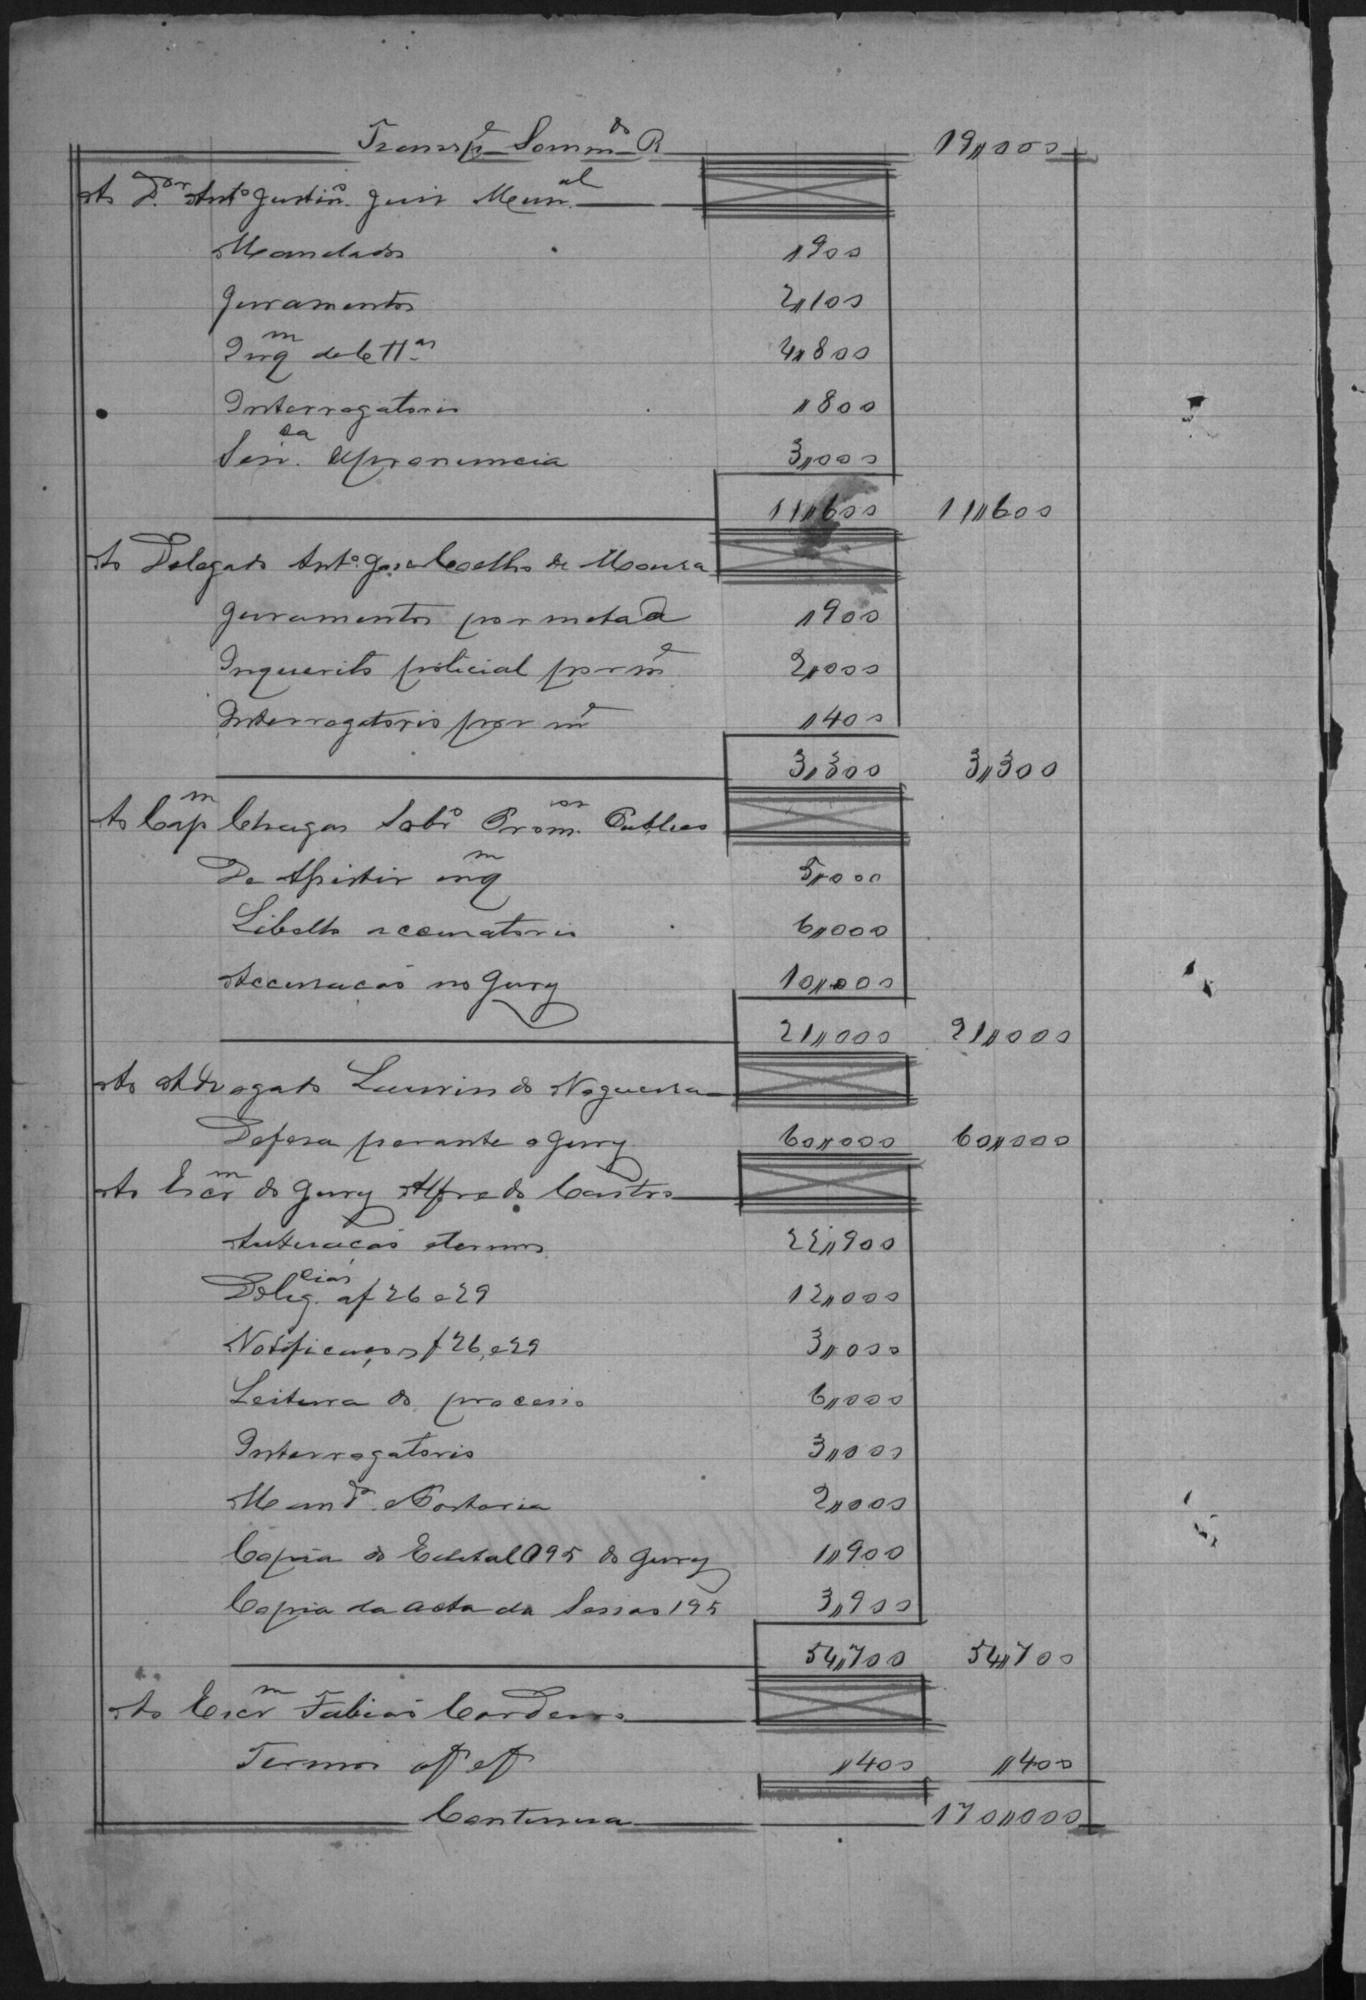 Transpe Sommdo R 19,,000
Ao Dor Anto Justino Juiz Munal
Mandados ,,900
Juramentos 2,,100
Inqm de 6 ttas 4,,800
Interrogatorio ,,800
Senca de pronuncia 3,,000
11,,600 11,,600
Ao Delegado Anto José Coelho de Moura
Juramentos por metade ,,900
Inquerito policial por me 2,,000
Interrogatorio por me ,,400
3,,300 3,,300
Ao Capm Chagas Sobro Promor Publico
De Assistir inqm 5,,000
Libello accusatorio 6,,000
Accusação no Jury 10,,000
21,,000 21,,000
Ao Advogado Laurindo Nogueira
Defesa perante o Jury 60,,000 60,,000
Ao Escrm do Jury Alfredo Castro
Autuação e termos 22,,900
Deligcias af 26 e 29 12,,000
Notificações f 26, e 29 3,,000
Leitura do processo 6,,000
Interrogatorio 3,,000
Mando e Portaria 2,,000
Copia do Edital 195 do Jury 1,,900
Copia da acta da Sessão 195 3,,900
54,,700 54,,700
Ao Escrm Fabião Cordeiro
Termos af e f ,,400 ,,400
Continua 170,,000